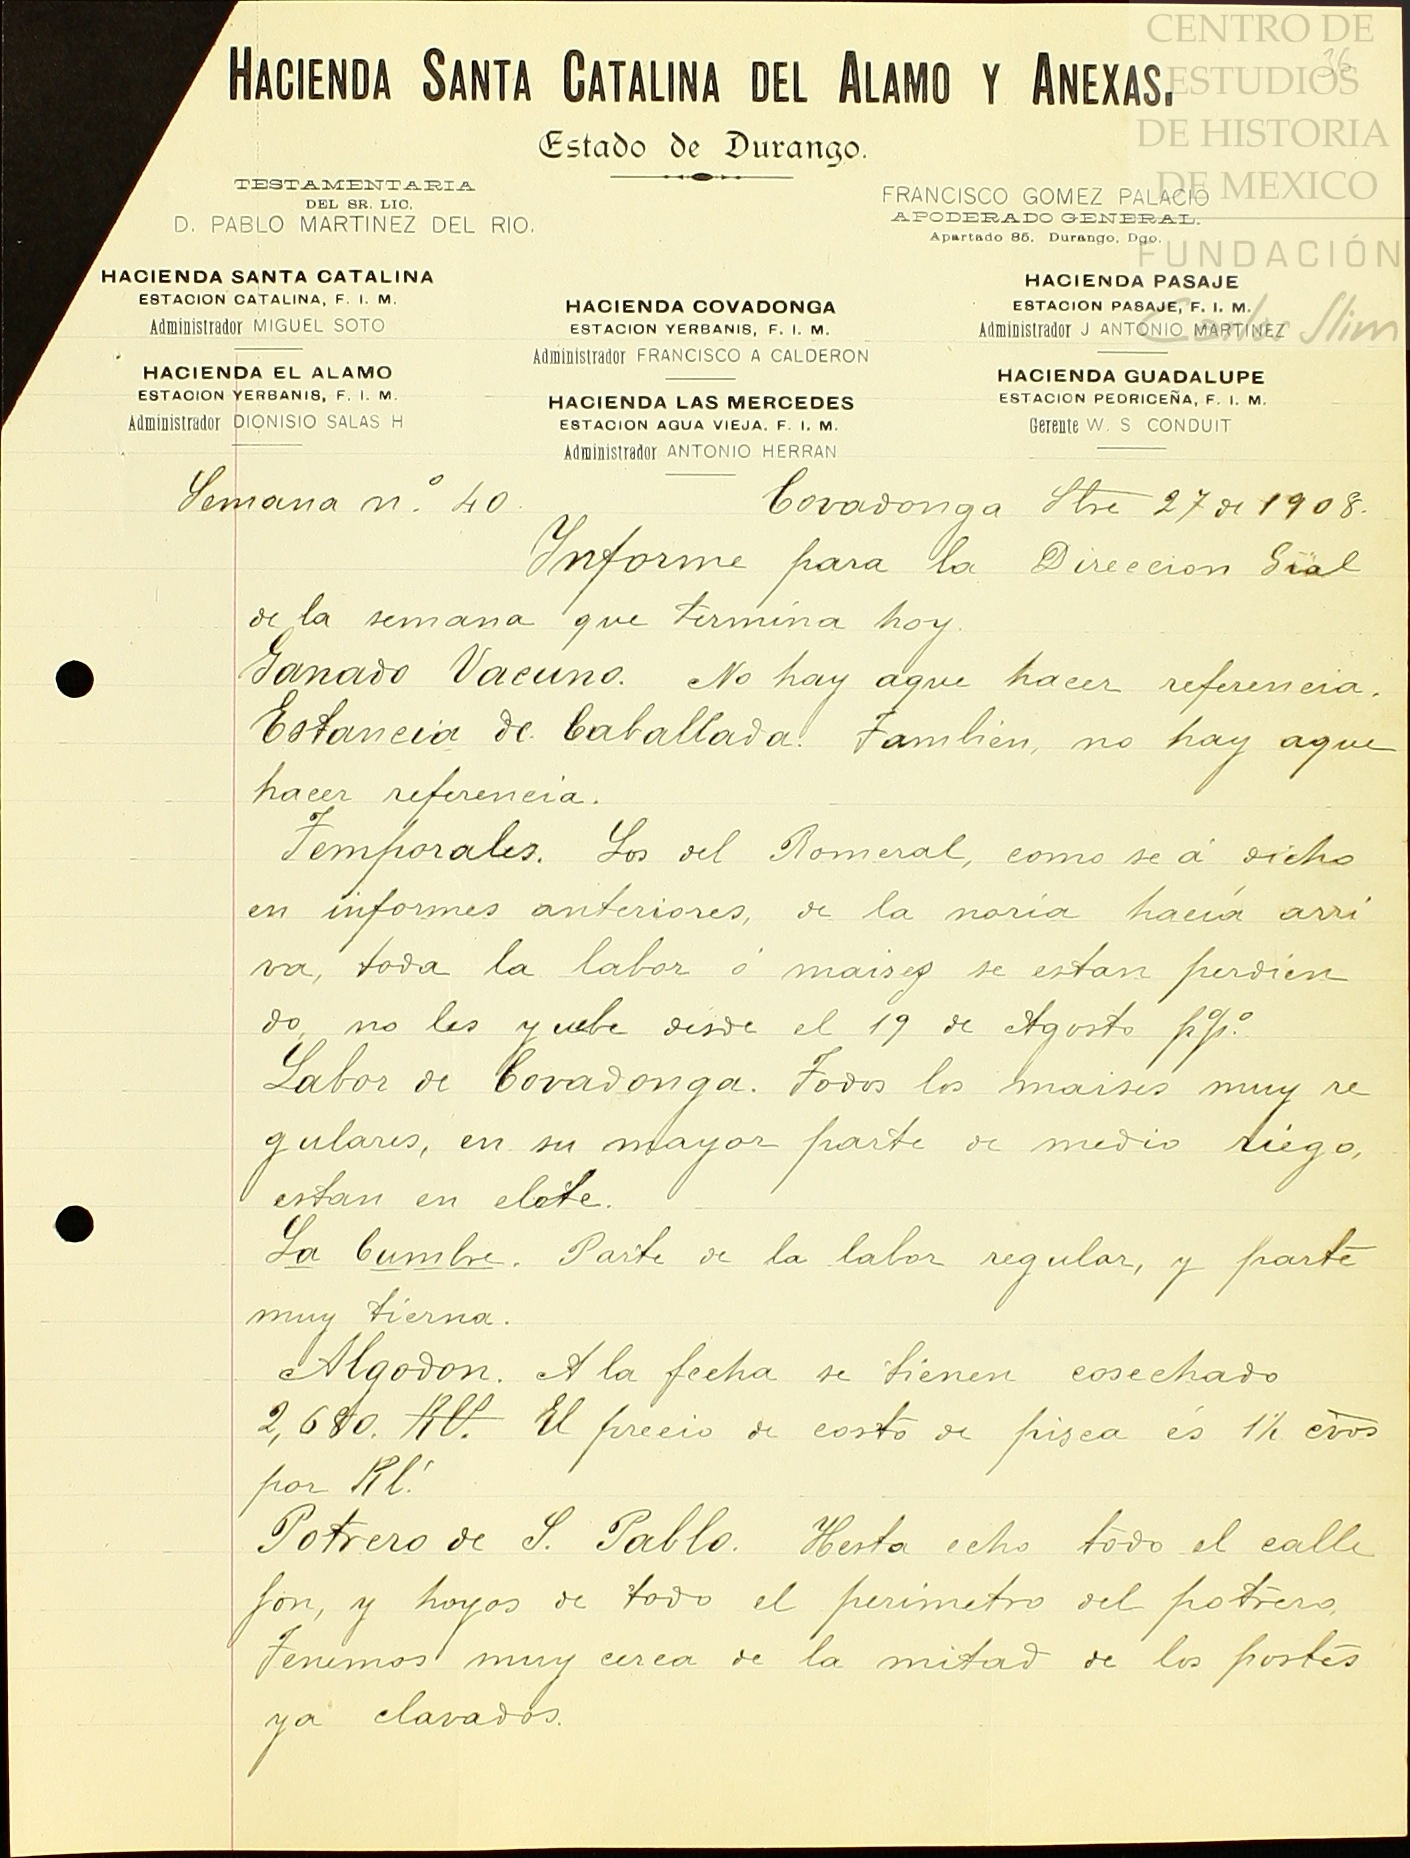 CENTRO DE
ESTUDIOS
DE HISTORIA
DE MEXICO
FUNDACIÓN
Carlos Slim
36
HACIENDA SANTA CATALINA DEL ALAMO Y ANEXAS.
Estado de Durango.
TESTAMENTARIA
DEL SR. LIC.
D. PABLO MARTINEZ DEL RIO.
FRANCISCO GOMEZ PALACIO
APODERADO GENERAL.
Apartado 85. Durango, Dgo.
HACIENDA SANTA CATALINA
ESTACION CATALINA, F. I. M.
Administrador MIGUEL SOTO
HACIENDA EL ALAMO
ESTACION YERBANIS, F. I. M.
Administrador DIONISIO SALAS H
HACIENDA COVADONGA
ESTACION YERBANIS, F. I. M.
Administrador FRANCISCO A CALDERON
HACIENDA LAS MERCEDES
ESTACION AGUA VIEJA. F. I. M.
Administrador ANTONIO HERRAN
HACIENDA PASAJE
ESTACION PASAJE, F. I. M.
Administrador J ANTONIO MARTINEZ
HACIENDA GUADALUPE
ESTACION PEDRICEÑA, F. I. M.
Gerente W. S CONDUIT
Semana n.º 40. Covadonga Stre 27 de 1908.
Informe para la Direccion Gral
de la semana que termina hoy.
Ganado Vacuno. No hay aque hacer referencia.
Estancia de Caballada. Tambien, no hay aque
hacer referencia.
Temporales. Los del Romeral, como se á dicho
en informes anteriores, de la noria hacia arri
va, toda la labor ó maises se estan perdien
do, no les yuebe desde el 19 de Agosto p.º p.º
Labor de Covadonga. Todos los maises muy re
gulares, en su mayor parte de medio riego,
estan en elote.
La Cumbre. Parte de la labor regular, y parte
muy tierna.
Algodon. A la fecha se tienen cosechado
2,680. Kl. El precio de costo de pisca és 1½ cvos
por Kl.
Potrero de S. Pablo. Hesta echo todo el calle
jon, y hoyos de todo el perimetro del potrero,
Tenemos muy cerca de la mitad de los postes
ya clavados.